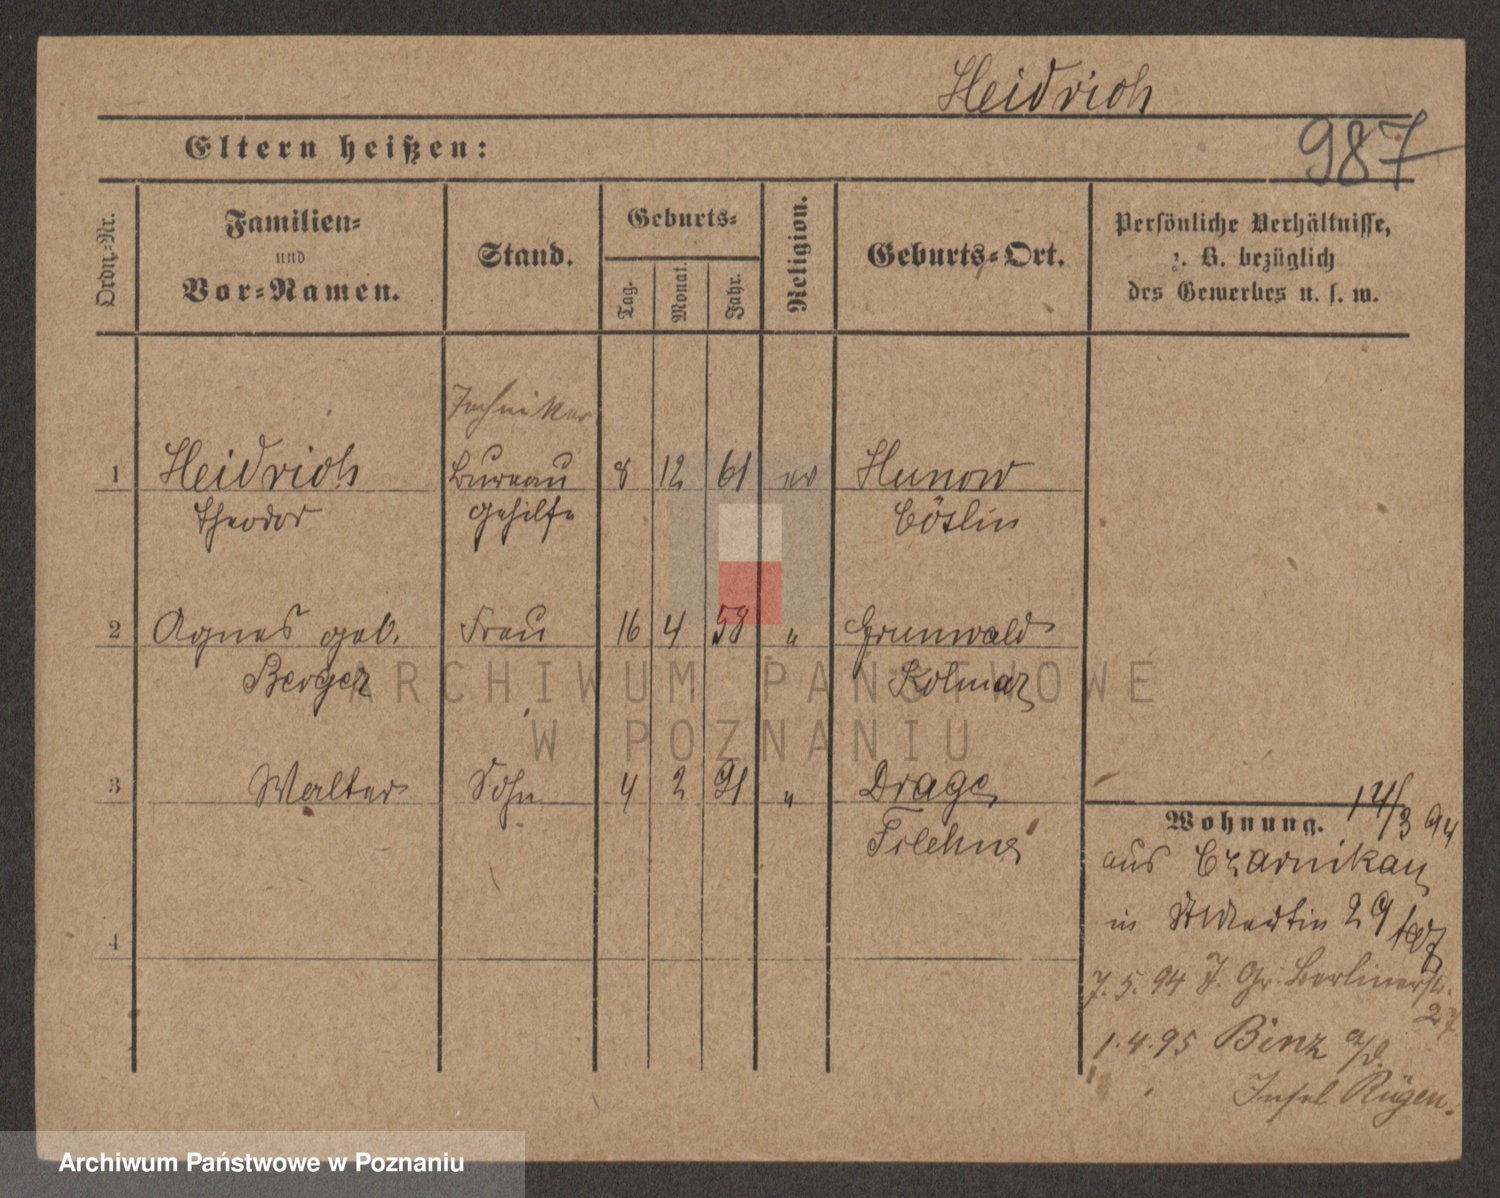 Heidrich
987
Eltern heißen:
Ordn.-Nr.
Familien-
und
Vor-Namen.
Stand.
Geburts-
Tag.
Monat.
Jahr.
Religion.
Geburts-Ort.
Persönliche Verhältnisse,
z. B. bezüglich
des Gewerbes u. s. w.
Techniker
1 Heidrich Bureau 8 12 61 ev Hunow
Theodor gehilfe Cöslin
2 Agnes geb. Frau 16 4 58 " Grunwald
Berger Kolmar
3 Walter Sohn 4 2 91 " Drage
Filehne
4
Wohnung. 14/3 94
aus Czarnikau
in St Martin 29
7. 5. 94 J. Gr. Berlinerstr.
27
1. 4. 95 Binz a/d.
Insel Rügen.
ARCHIWUM PAŃSTWOWE
W POZNANIU
Archiwum Państwowe w Poznaniu